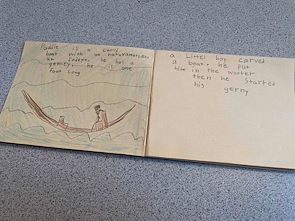 Paddle is a carvd
boat with a
an Indean. he has a
gerney. he is one
foot long
a Littel boy carved
a boat. he put
him in the water
then he started
his gerny